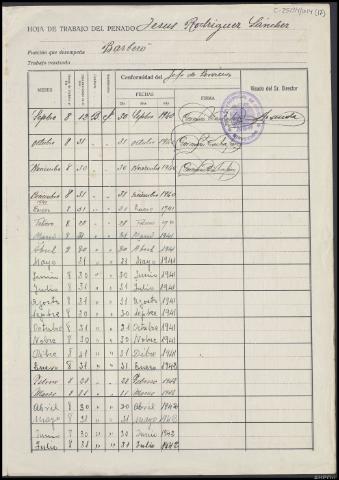 C-25014/0014 (12)
HOJA DE TRABAJO DEL PENADO Jesus Rodriguez Sánchez
Función que desempeña Barbero
Trabajo realizado
MESES
Conformidad del Jefe de Servicios
FECHAS
FIRMA
Visado del Sr. Director
Día Mes Año
Septbre 8 30 Septbre 1940
Octubre 8 31 " " 31 octubre 1940
Noviembre 8 30 " " 30 Noviembre 1940
Diciembre 8 31 " " 31 Diciembre 1940
1941
Enero 8 31 " " 31 Enero 1941
Febrero 8 28 " " 28 Febro 1941
Marzo 8 31 " " 31 Marzo 1941
Abril 8 30 " " 30 Abril 1941
Mayo 31 " " 31 Mayo 1941
Junio 8 30 " " 30 Junio 1941
Julio 8 31 " " 31 Julio 1941
Agosto 8 31 " " 31 Agosto 1941
Septbre 8 30 " " 30 Septbre 1941
Octubre 8 31 " " 31 Octubre 1941
Novbre 8 30 " " 30 Novbre 1941
Dicbre 8 31 " " 31 Dicbre 1941
Enero 8 31 " " 31 Enero 1942
Febrero 8 28 " " 28 Febrero 1942
Marzo 8 31 " " 31 Marzo 1942
Abril 8 30 " " 30 Abril 1942
Mayo 8 31 " " 31 Mayo 1942
Junio 8 30 " " 30 Junio 1942
Julio 8 31 " " 31 Julio 1942